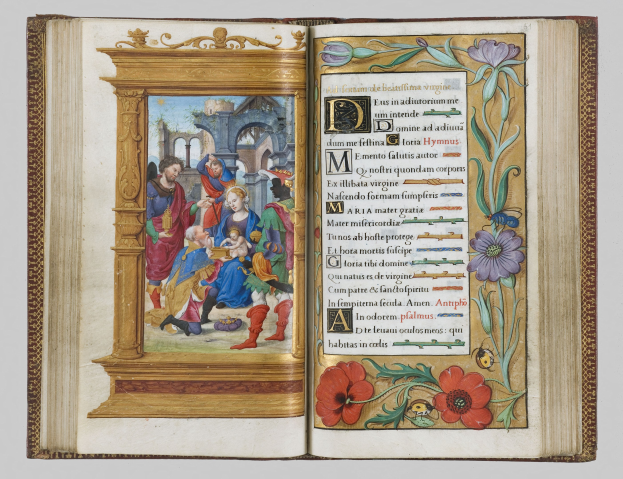 de beatissima virgine
Deus in adiutorium me
um intende
Domine ad adiuuā
dum me festina Gloria Hymnus
Memento salutis autor
Qƺ nostri quondam corporis
Ex illibata virgine
Nascendo formam sumpseris
MARIA mater gratiæ
Mater misericordiæ
Tu nos ab hoste protege
Et hora mortis suscipe
Gloria tibi domine
Qui natus es de virgine
Cum patre & sancto spiritu
In sempiterna secula. Amen. Antipho
In odorem. psalmus.
AD te leuaui oculos meos: qui
habitas in cœlis